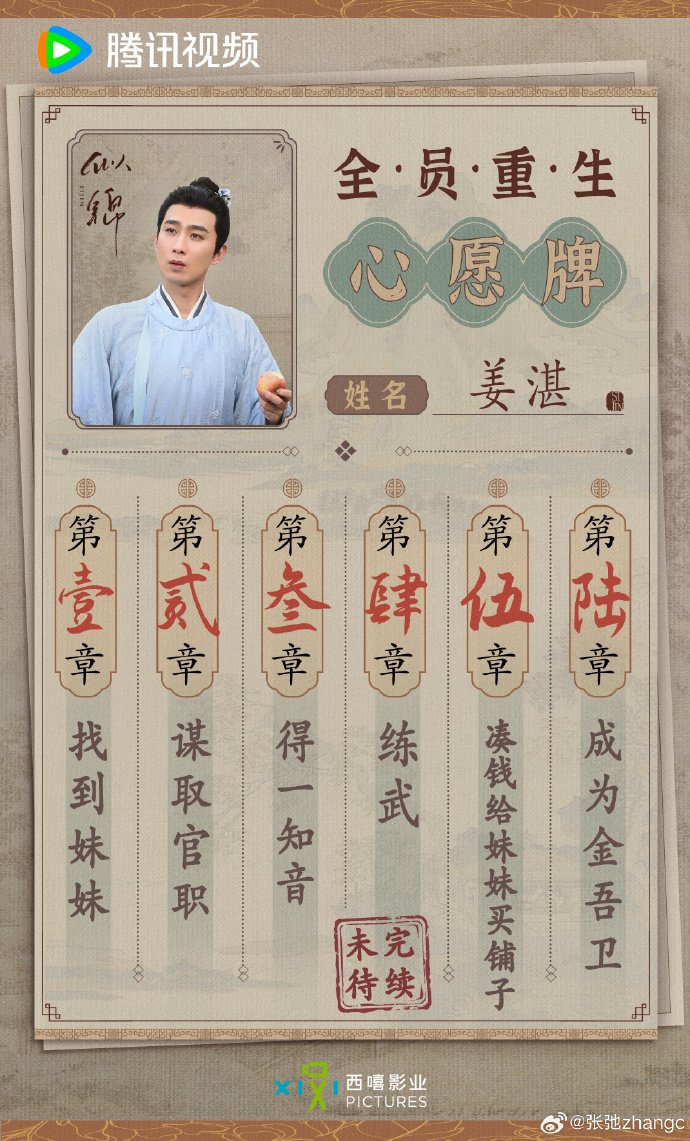 腾讯视频
似锦
SIJIN
全·员·重·生
心愿牌
姓名
姜湛
第壹章
找到妹妹
第贰章
谋取官职
第叁章
得一知音
第肆章
练武
第伍章
凑钱给妹妹买铺子
第陆章
成为金吾卫
未完
待续
XIXI
西嘻影业
PICTURES
@张弛zhangc